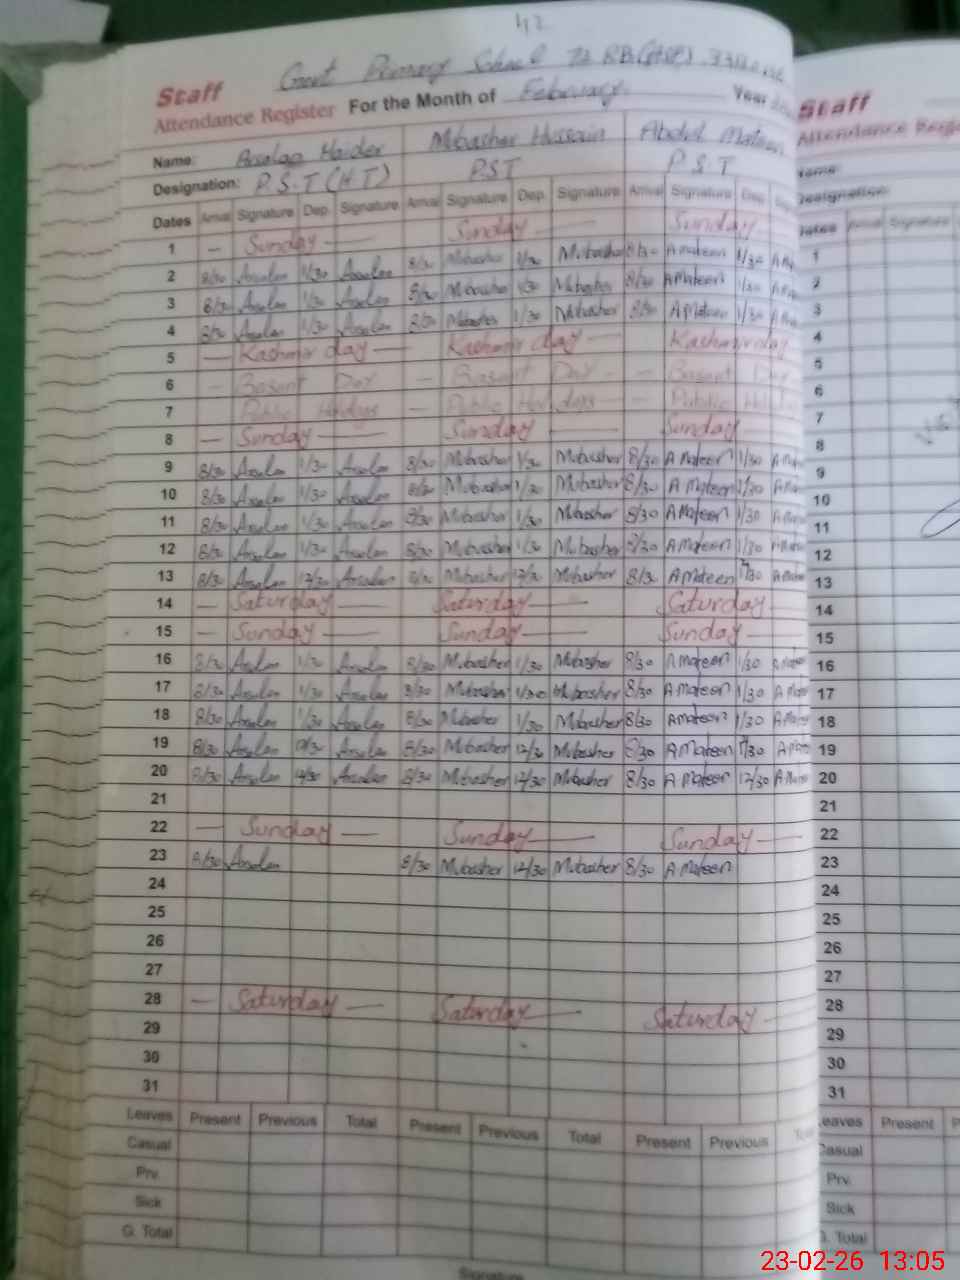 42
Govt Primary School 72 RB
Staff
Attendance Register For the Month of February Year
Name: Arsalan Haider Mubashar Hussain Abdul Mateen
Designation: P.S.T (H.T) P.S.T P.S.T
Dates Arrival Signature Dep. Signature Arrival Signature Dep. Signature Arrival Signature Dep.
1 — Sunday — Sunday — Sunday
2 8/30 Arsalan 1/30 Arsalan 8/30 Mubasher 1/30 Mubasher 8/30 A Mateen 1/30
3 8/30 Arsalan 1/30 Arsalan 8/30 Mubasher 1/30 Mubasher 8/30 A Mateen 1/30
4 8/30 Arsalan 1/30 Arsalan 8/30 Mubasher 1/30 Mubasher 8/30 A Mateen 1/30
5 — Kashmir day — Kashmir day — Kashmir day
6 — Basant Day — Basant Day — Basant Day
7 Public Holidays — Public Holidays — Public
8 — Sunday — Sunday — Sunday
9 8/30 Arsalan 1/30 Arsalan 8/30 Mubasher 1/30 Mubasher 8/30 A Mateen 1/30
10 8/30 Arsalan 1/30 Arsalan 8/30 Mubasher 1/30 Mubasher 8/30 A Mateen 1/30
11 8/30 Arsalan 1/30 Arsalan 8/30 Mubasher 1/30 Mubasher 8/30 A Mateen 1/30
12 8/30 Arsalan 1/30 Arsalan 8/30 Mubasher 1/30 Mubasher 8/30 A Mateen 1/30
13 8/30 Arsalan 12/30 Arsalan 8/30 Mubasher 12/30 Mubasher 8/30 A Mateen
14 — Saturday — Saturday — Saturday
15 — Sunday — Sunday — Sunday
16 8/30 Arsalan 1/30 Arsalan 8/30 Mubasher 1/30 Mubasher 8/30 A Mateen 1/30
17 8/30 Arsalan 1/30 Arsalan 8/30 Mubasher 1/30 Mubasher 8/30 A Mateen 1/30
18 8/30 Arsalan 1/30 Arsalan 8/30 Mubasher 1/30 Mubasher 8/30 A Mateen 1/30
19 8/30 Arsalan 12/30 Arsalan 8/30 Mubasher 12/30 Mubasher 8/30 A Mateen
20 8/30 Arsalan 12/30 Arsalan 8/30 Mubasher 12/30 Mubasher 8/30 A Mateen 12/30
21
22 — Sunday — Sunday — Sunday —
23 8/30 Arsalan 8/30 Mubasher 12/30 Mubasher 8/30 A Mateen
24
25
26
27
28 — Saturday — Saturday — Saturday
29
30
31
Leaves Present Previous Total Present Previous Total Present Previous
Casual
Prv.
Sick
G. Total
Signature
Staff
Attendance
1
2
3
4
5
6
7
8
9
10
11
12
13
14
15
16
17
18
19
20
21
22
23
24
25
26
27
28
29
30
31
Leaves Present
Casual
Prv.
Sick
G. Total
23-02-26 13:05